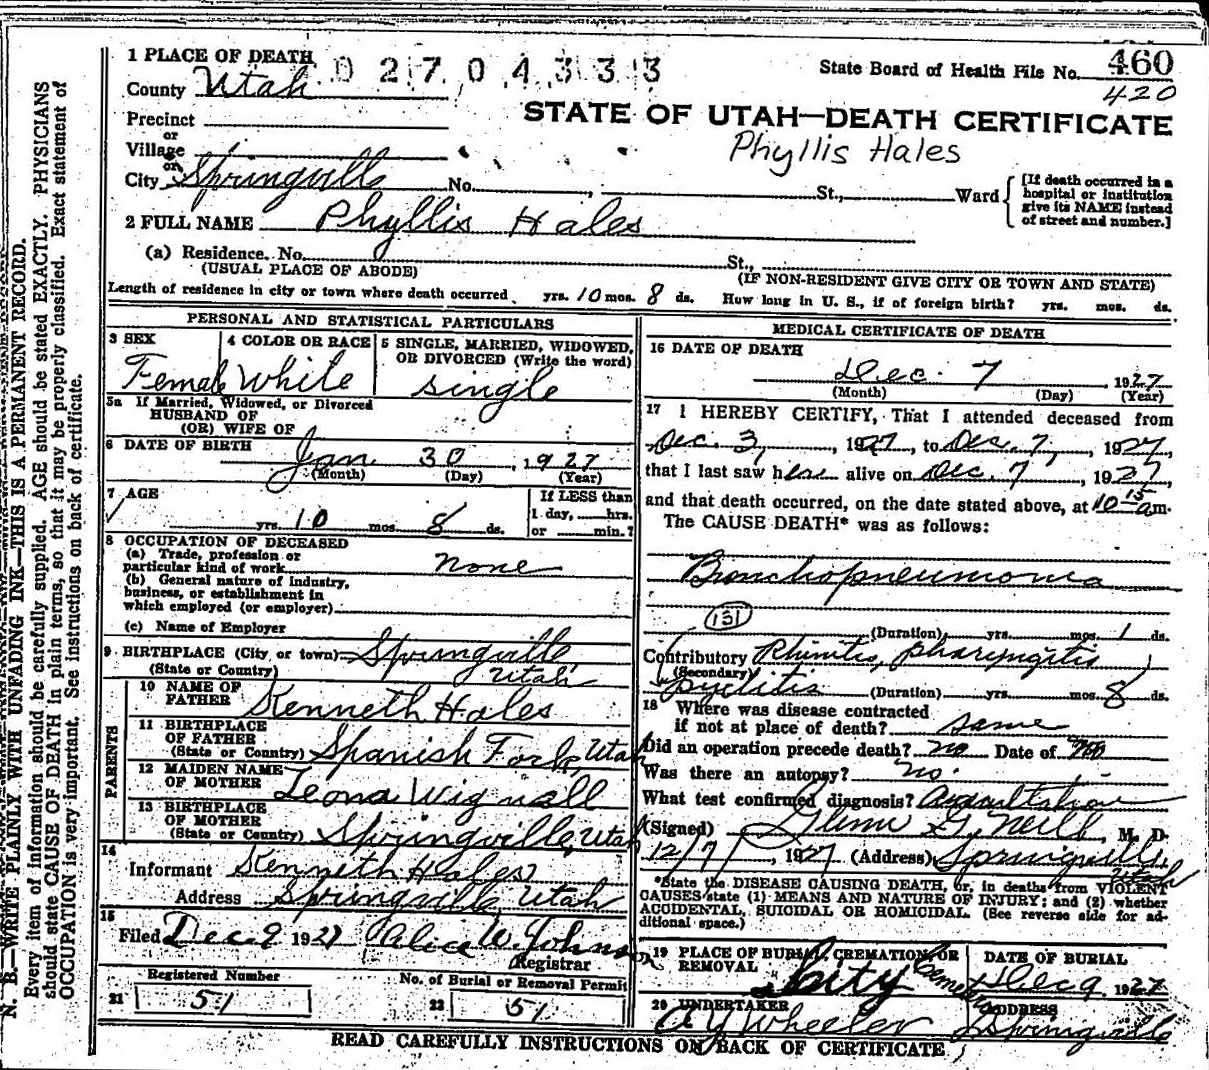 1 PLACE OF DEATH 02704333
State Board of Health File No. 460
County Utah 420
STATE OF UTAH—DEATH CERTIFICATE
Precinct
or
Village
Phyllis Hales
or
City Springville No. , St., Ward
[If death occurred in a
hospital or institution
give its NAME instead
of street and number.]
2 FULL NAME Phyllis Hales
(a) Residence. No. St.,
(USUAL PLACE OF ABODE) (IF NON-RESIDENT GIVE CITY OR TOWN AND STATE)
Length of residence in city or town where death occurred yrs. 10 mos. 8 ds. How long in U. S., if of foreign birth? yrs. mos. ds.
PERSONAL AND STATISTICAL PARTICULARS
3 SEX 4 COLOR OR RACE 5 SINGLE, MARRIED, WIDOWED,
OR DIVORCED (Write the word)
Female White single
5a If Married, Widowed, or Divorced
HUSBAND OF
(OR) WIFE OF
6 DATE OF BIRTH
Jan 30, 1927
(Month) (Day) (Year)
7 AGE If LESS than
1 day, hrs.
yrs. 10 mos. 8 ds. or min.?
8 OCCUPATION OF DECEASED
(a) Trade, profession or
particular kind of work none
(b) General nature of industry,
business, or establishment in
which employed (or employer)
(c) Name of Employer
9 BIRTHPLACE (City, or town) Springville
(State or Country) Utah
PARENTS
10 NAME OF
FATHER Kenneth Hales
11 BIRTHPLACE
OF FATHER
(State or Country) Spanish Fork, Utah
12 MAIDEN NAME
OF MOTHER Leona Wignall
13 BIRTHPLACE
OF MOTHER
(State or Country) Springville, Utah
14
Informant Kenneth Hales
Address Springville, Utah
15
Filed Dec 9 1927 Alice W. Johnson
Registrar
Registered Number No. of Burial or Removal Permit
21 51 22 51
MEDICAL CERTIFICATE OF DEATH
16 DATE OF DEATH
Dec. 7 1927
(Month) (Day) (Year)
17 I HEREBY CERTIFY, That I attended deceased from
Dec. 3, 1927, to Dec. 7, 1927,
that I last saw her alive on Dec. 7, 1927
and that death occurred, on the date stated above, at 10 15 am.
The CAUSE DEATH* was as follows:
Bronchopneumonia
131
(Duration) yrs. mos. 1 ds.
Contributory Rhinitis, pharyngitis
(Secondary)
pyelitis (Duration) yrs. mos. 8 ds.
18 Where was disease contracted
if not at place of death? same
Did an operation precede death? no Date of no
Was there an autopsy? no.
What test confirmed diagnosis? Auscultation
(Signed) Glenn G. Neill, M. D.
12/7/, 1927 (Address) Springville, Utah
*State the DISEASE CAUSING DEATH, or, in deaths from VIOLENT
CAUSES state (1) MEANS AND NATURE OF INJURY; and (2) whether
ACCIDENTAL, SUICIDAL OR HOMICIDAL. (See reverse side for ad-
ditional space.)
19 PLACE OF BURIAL, CREMATION, OR DATE OF BURIAL
REMOVAL City Cemetery Dec 9. 1927
20 UNDERTAKER ADDRESS
A Y Wheeler Springville
READ CAREFULLY INSTRUCTIONS ON BACK OF CERTIFICATE
N. B.—WRITE PLAINLY WITH UNFADING INK—THIS IS A PERMANENT RECORD.
Every item of information should be carefully supplied. AGE should be stated EXACTLY. PHYSICIANS
should state CAUSE OF DEATH in plain terms, so that it may be properly classified. Exact statement of
OCCUPATION is very important. See instructions on back of certificate.